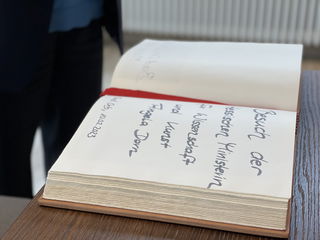 Besuch der
hessischen Ministerin
für Wissenschaft
und Kunst
Angela Dorn